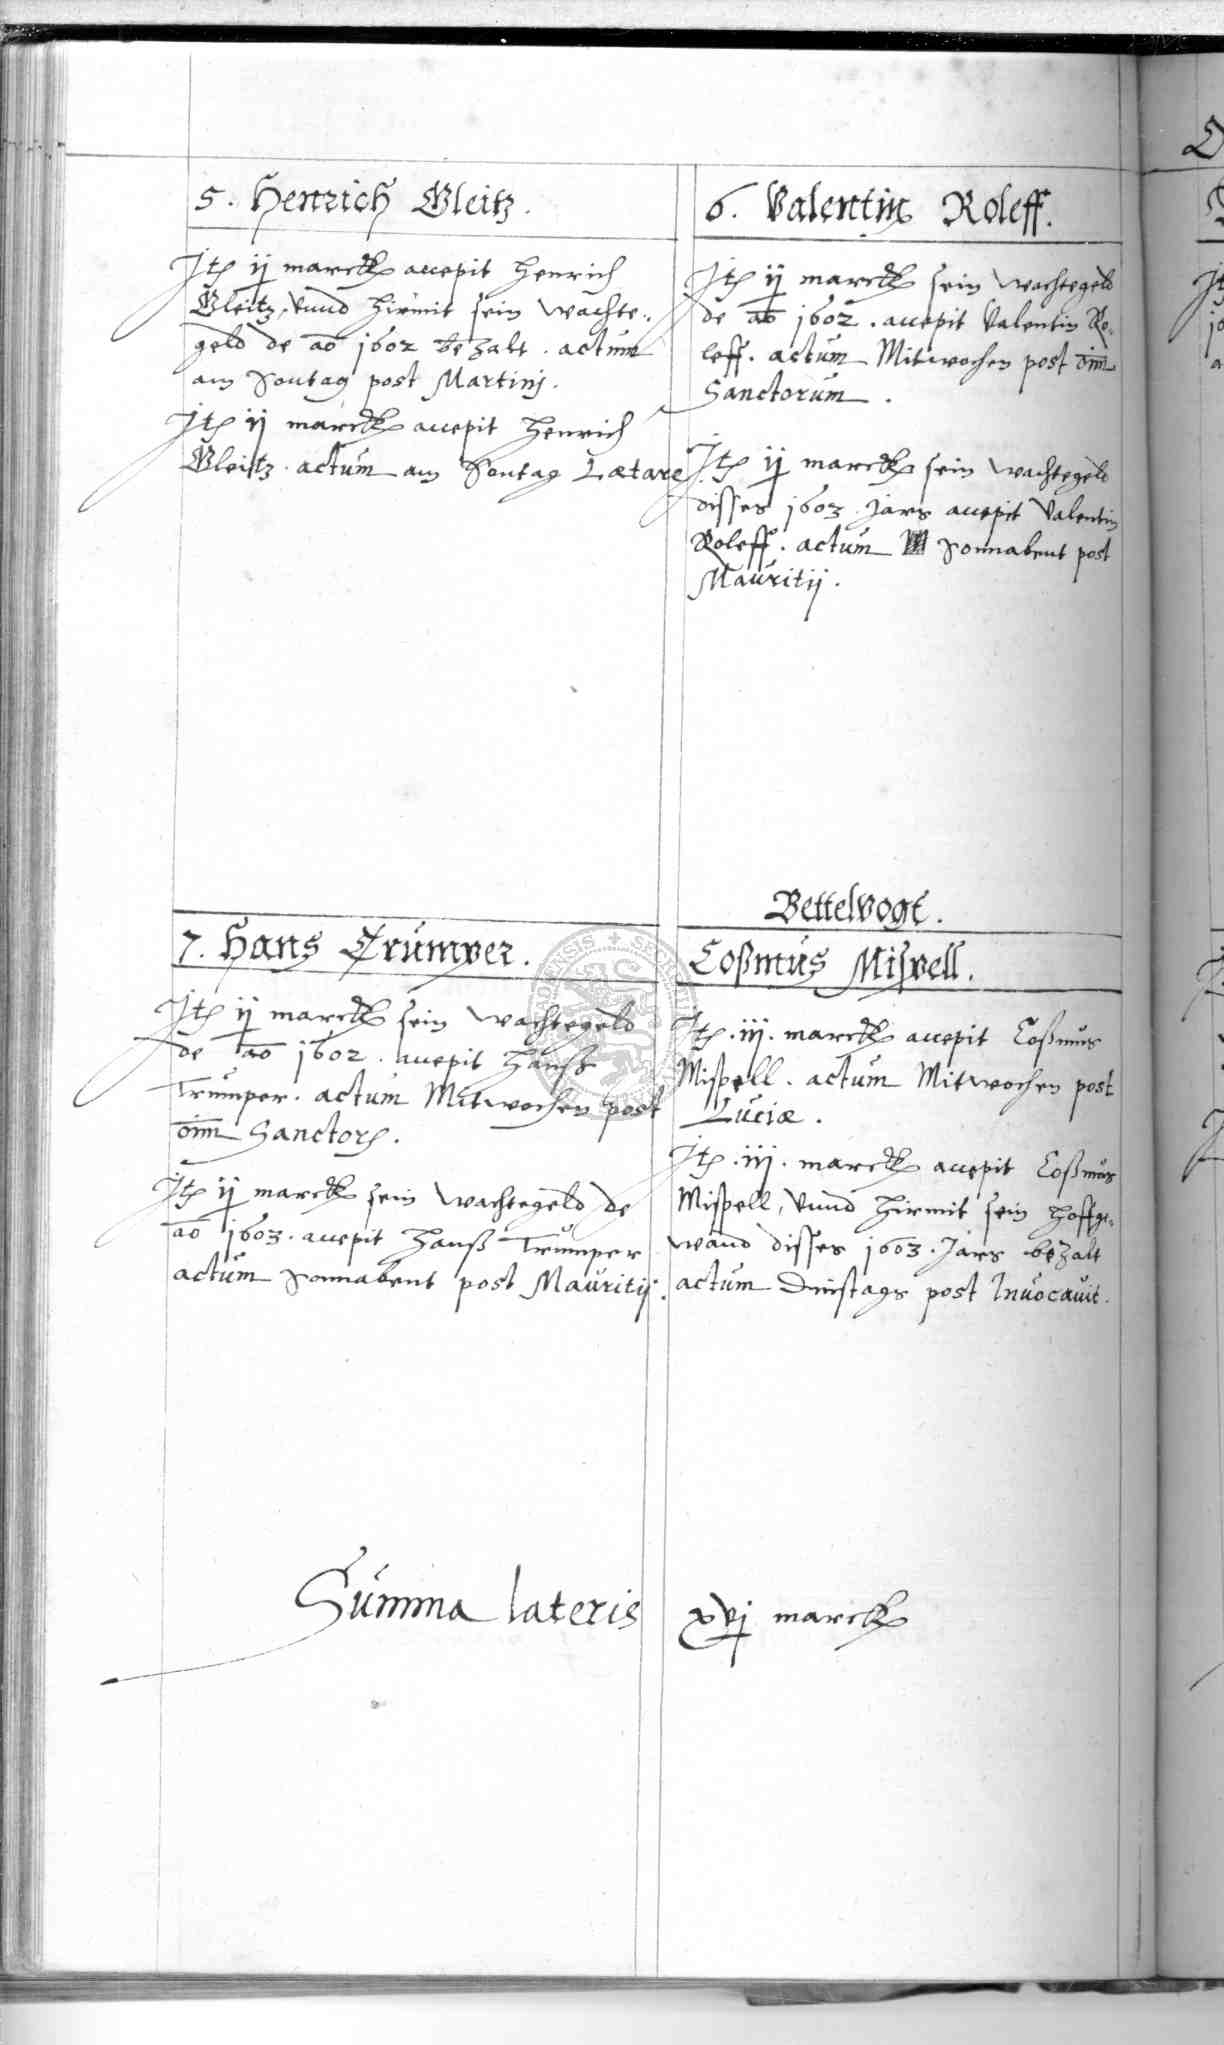 5. Henrich Gleitz.
Jtem ij marck accepit Henrich
Gleitz, vnnd hirmit sein wachte-
geld de ao 1602 bezalt. actum
am Sontag post Martinj.
Jtem ij marck accepit Henrich
Gleitz. actum am Sontag Lætare
6. Valentin Roleff.
Jtem ij marck sein wachtegeld
de ao 1602. accepit Valentin Ro-
leff. actum Mitwochen post oim
Sanctorum.
Jtem ij marck sein wachtegeld
disses 1603. Jars accepit Valentin
Roleff. actum Sonnabent post
Mauritij.
7. Hans Trumper.
Jtem ij marck sein wachtegeld
de ao 1602. accepit Hanß
Trumper. actum Mitwochen post
oim Sanctor.
Jtem ij marck sein wachtegeld de
ao 1603. accepit Hanß Trumper
actum Sonnabent post Mauritij.
Bettelvogt.
Coßmus Mispell.
Jtem .iij. marck accepit Coßmus
Mispell. actum Mitwochen post
Luciæ.
Jtem .iij. marck accepit Coßmus
Mispell, vnnd hirmit sein hoffge-
wand disses 1603. Jars bezalt
actum Dinstags post Inuocauit.
Summa lateris xvj marck